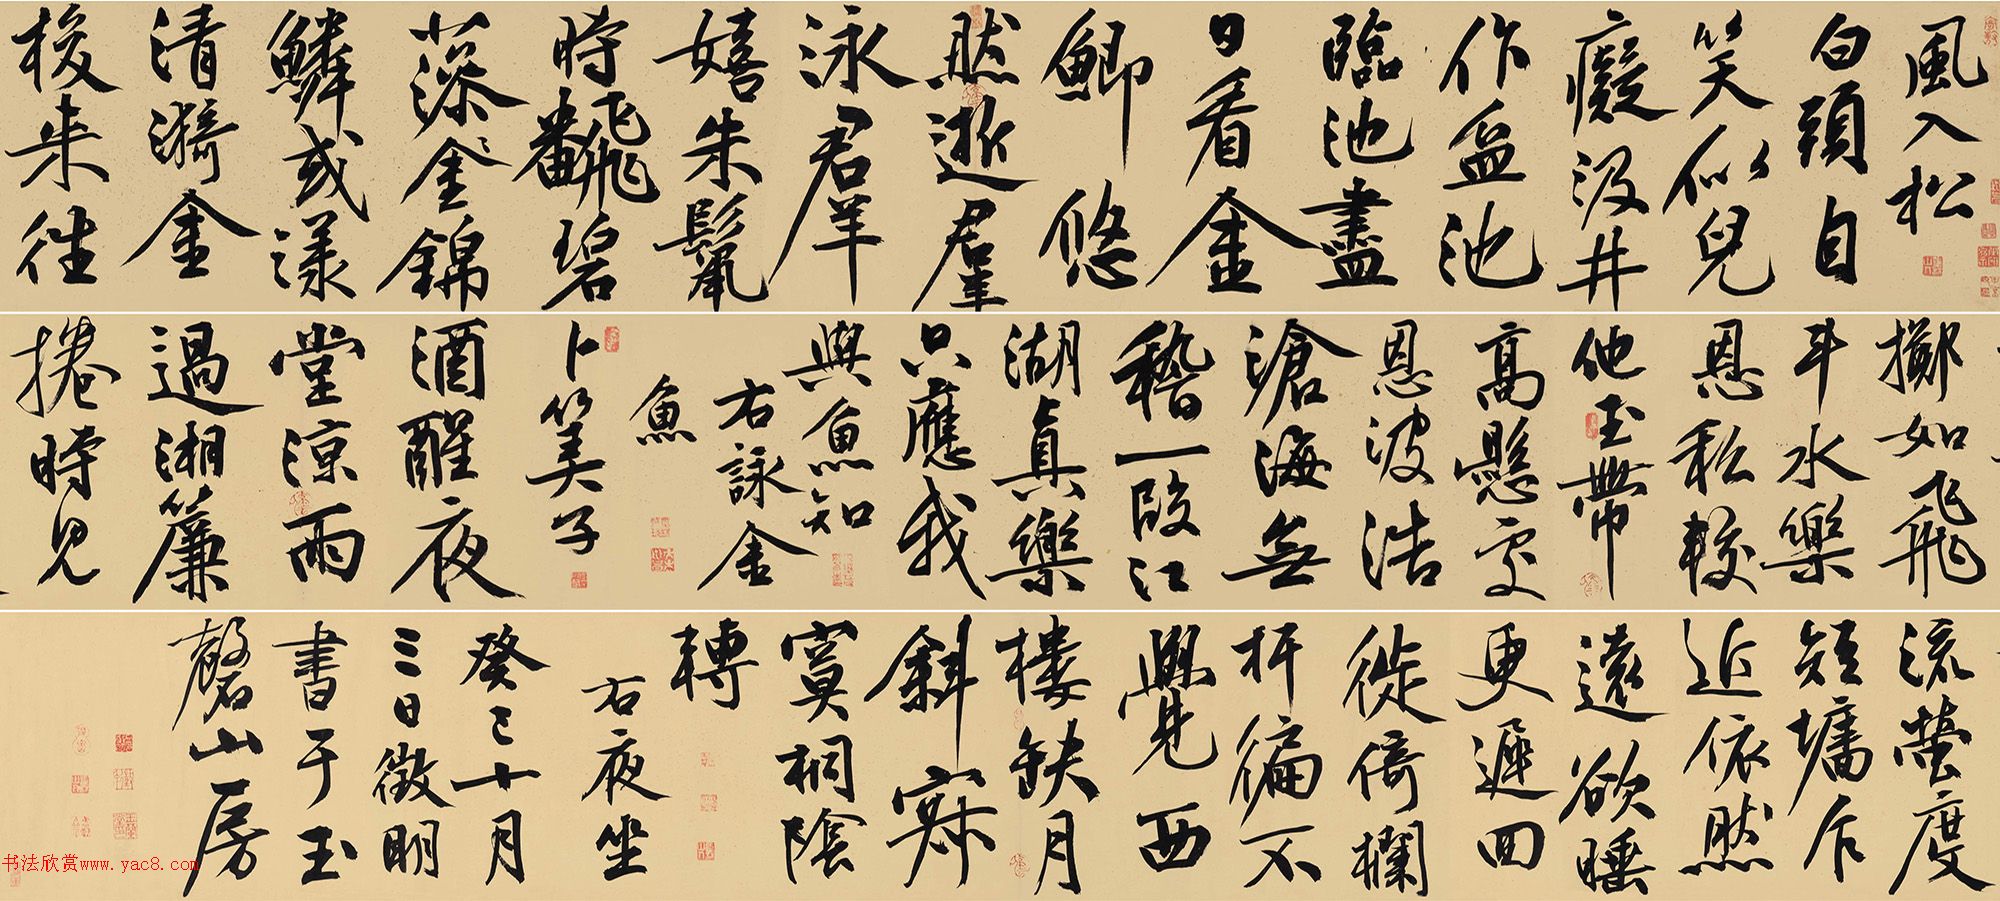 風入松
白頭自
笑似兒
癡汲井
作盆池
臨池盡
日看金
鯽悠
然逝羣
泳羣
嬉朱鬣
時飜碧
藻金錦
鱗或漾
清漪金
梭来往
擲如飛
斗水樂
恩私較
他玉帶
高懸處
恩波浩
滄海無
稽一段江
湖真樂
只應我
與魚知
右詠金
魚
卜筭子
酒醒夜
堂涼雨
過湘簾
捲時見
流螢度
短墉乍
近依然
遠欲睡
更遲回
徙倚欄
杆徧不
覺西
樓缺月
斜寂
寞桐陰
轉
右夜坐
癸巳十月
三日徵明
書于玉
磬山房
书法欣赏www.yac8.com